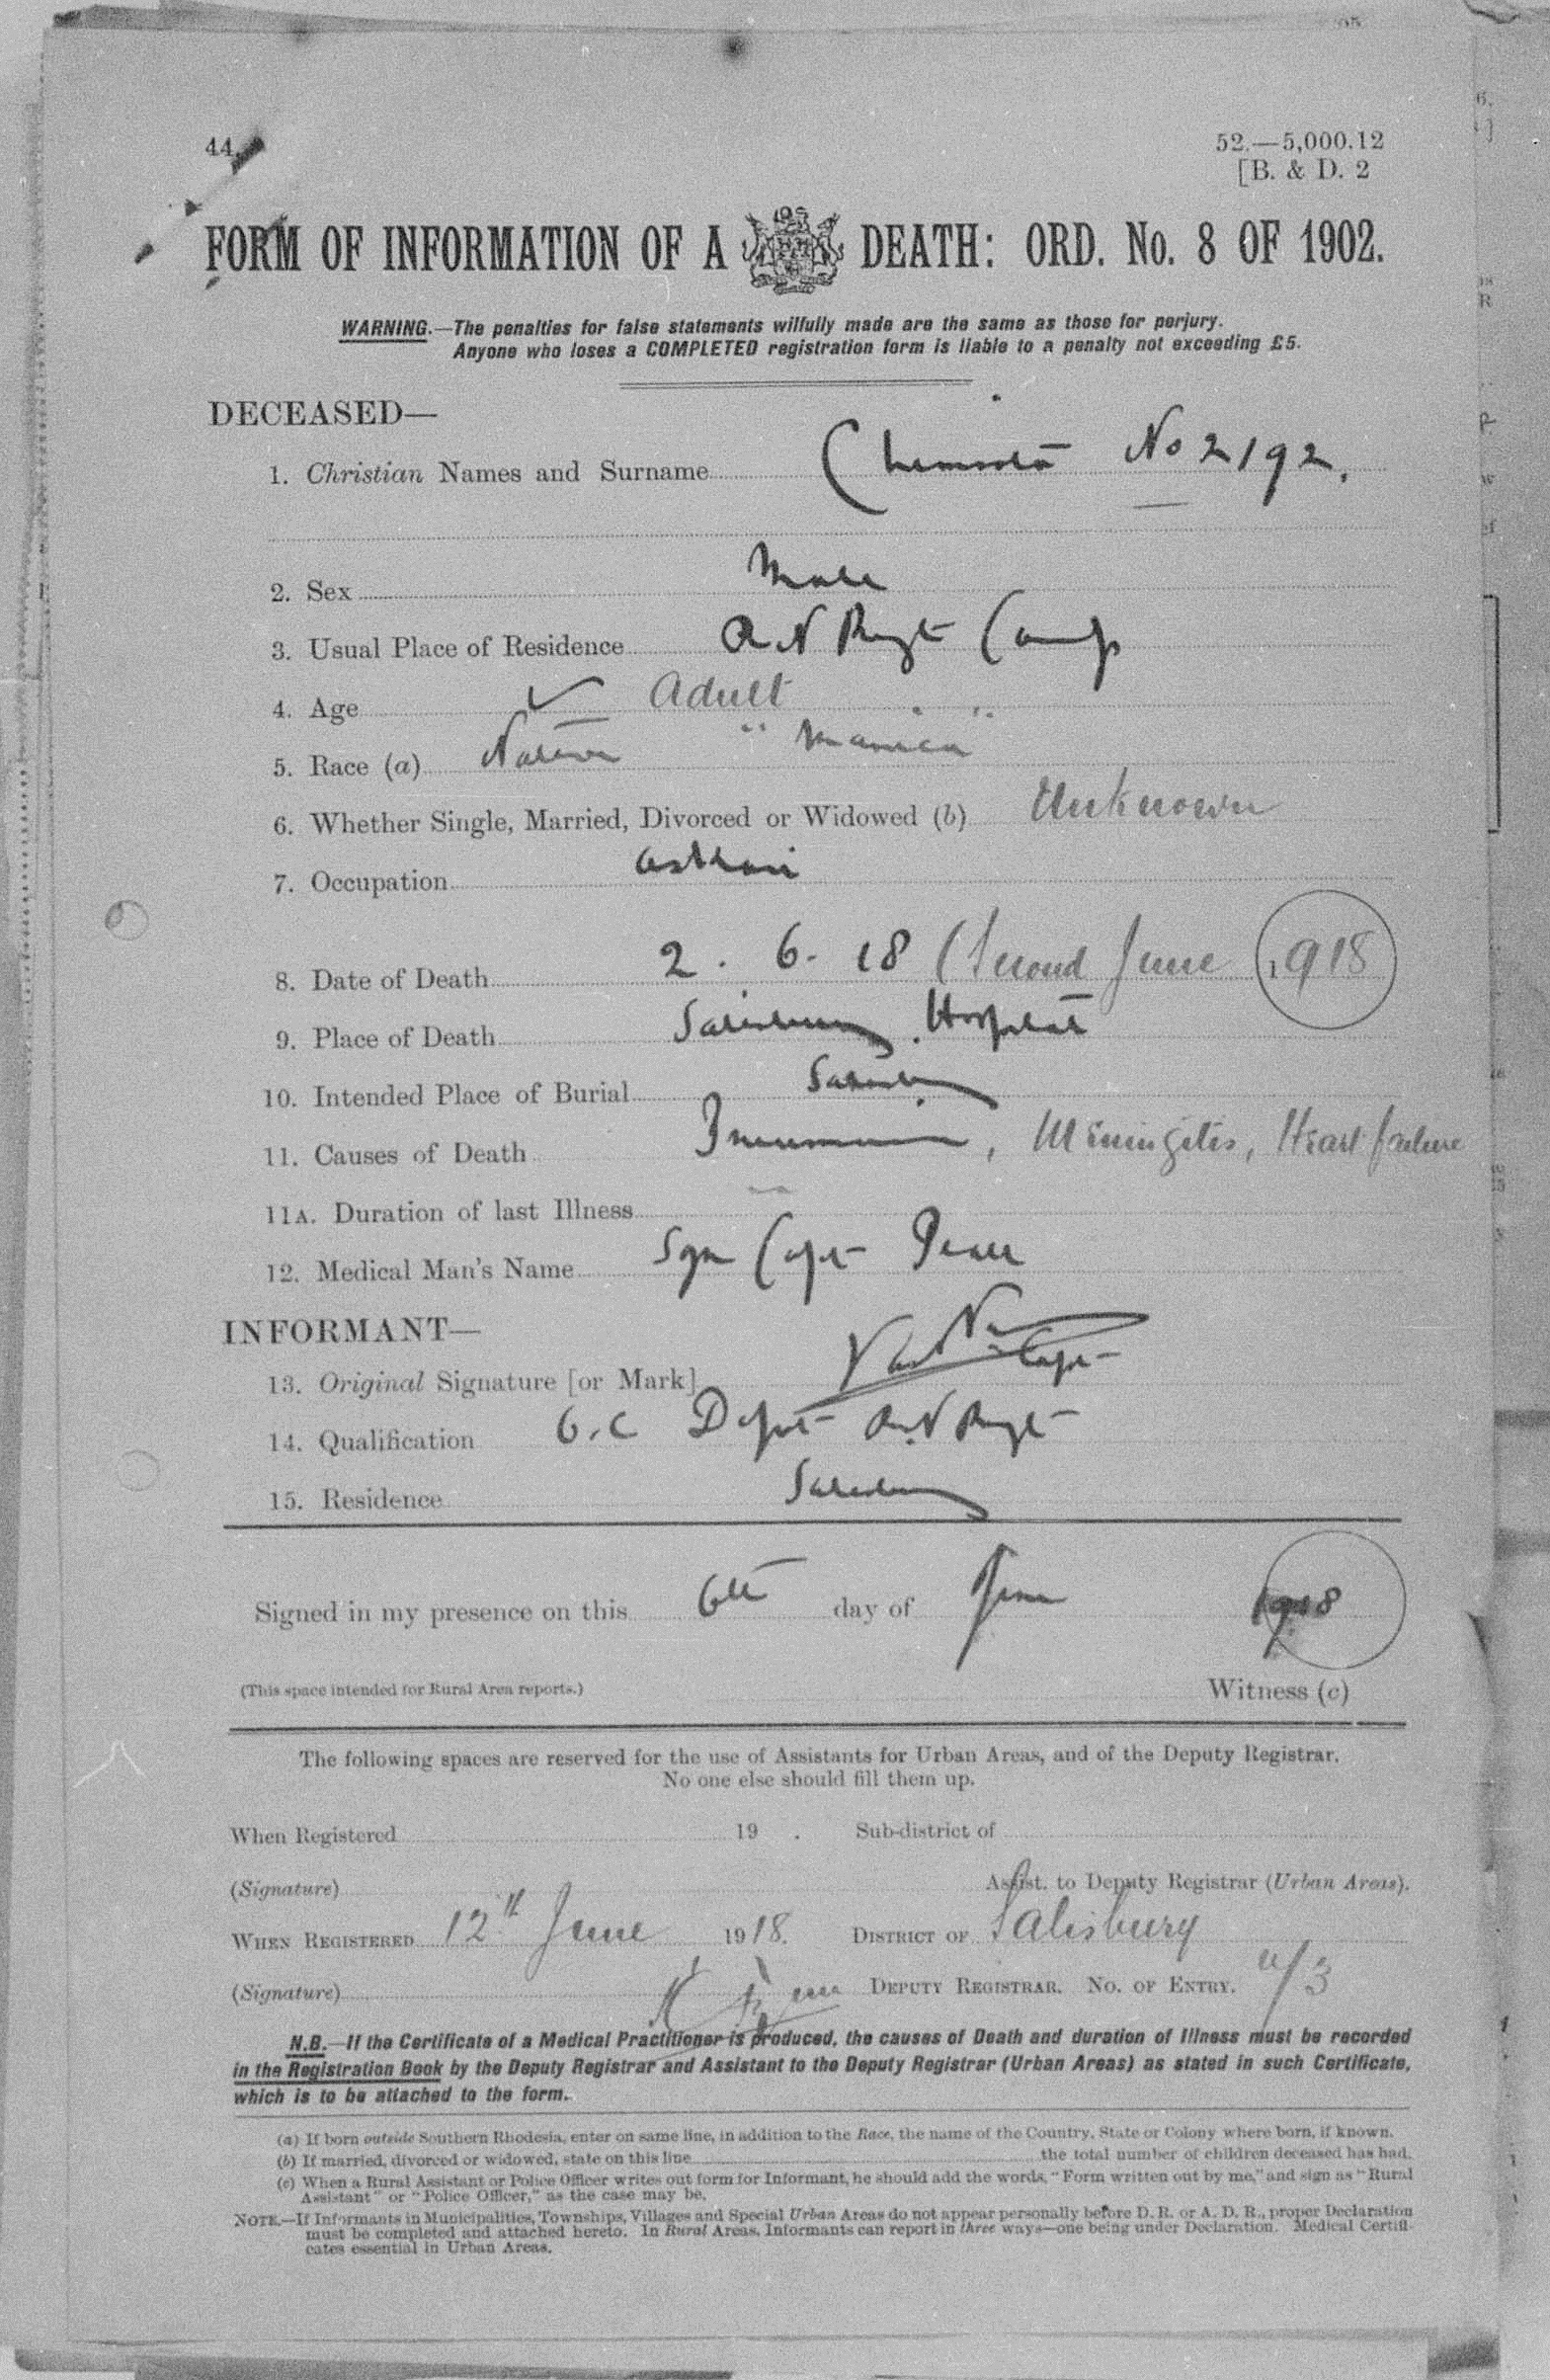 44.
52.—5,000.12
[B. & D. 2
FORM OF INFORMATION OF A DEATH: ORD. No. 8 OF 1902.
WARNING.—The penalties for false statements wilfully made are the same as those for perjury.
Anyone who loses a COMPLETED registration form is liable to a penalty not exceeding £5.
DECEASED—
1. Christian Names and Surname No 2192.
2. Sex Male
3. Usual Place of Residence R N Regt Camp
4. Age Adult
5. Race (a) Native "Manica"
6. Whether Single, Married, Divorced or Widowed (b) Unknown
7. Occupation Askari
8. Date of Death 2. 6. 18 (Second June 1918
9. Place of Death Salisbury Hospital
10. Intended Place of Burial Salisbury
11. Causes of Death Pneumonia, Meningitis, Heart failure
11A. Duration of last Illness
12. Medical Man's Name Capt
INFORMANT—
13. Original Signature [or Mark] Capt
14. Qualification O.C Depot R.N Regt
15. Residence Salisbury
Signed in my presence on this 6th day of June 1918
(This space intended for Rural Area reports.) Witness (c)
The following spaces are reserved for the use of Assistants for Urban Areas, and of the Deputy Registrar.
No one else should fill them up.
When Registered 19 . Sub-district of
(Signature) Assist. to Deputy Registrar (Urban Areas).
WHEN REGISTERED 12th June 1918. DISTRICT OF Salisbury
(Signature) DEPUTY REGISTRAR. NO. OF ENTRY.
N.B.—If the Certificate of a Medical Practitioner is produced, the causes of Death and duration of Illness must be recorded
in the Registration Book by the Deputy Registrar and Assistant to the Deputy Registrar (Urban Areas) as stated in such Certificate,
which is to be attached to the form.
(a) If born outside Southern Rhodesia, enter on same line, in addition to the Race, the name of the Country, State or Colony where born, if known.
(b) If married, divorced or widowed, state on this line the total number of children deceased has had.
(c) When a Rural Assistant or Police Officer writes out form for Informant, he should add the words, "Form written out by me," and sign as "Rural
Assistant" or "Police Officer," as the case may be.
NOTE.—If Informants in Municipalities, Townships, Villages and Special Urban Areas do not appear personally before D. R. or A. D. R., proper Declaration
must be completed and attached hereto. In Rural Areas, Informants can report in three ways—one being under Declaration. Medical Certifi-
cates essential in Urban Areas.